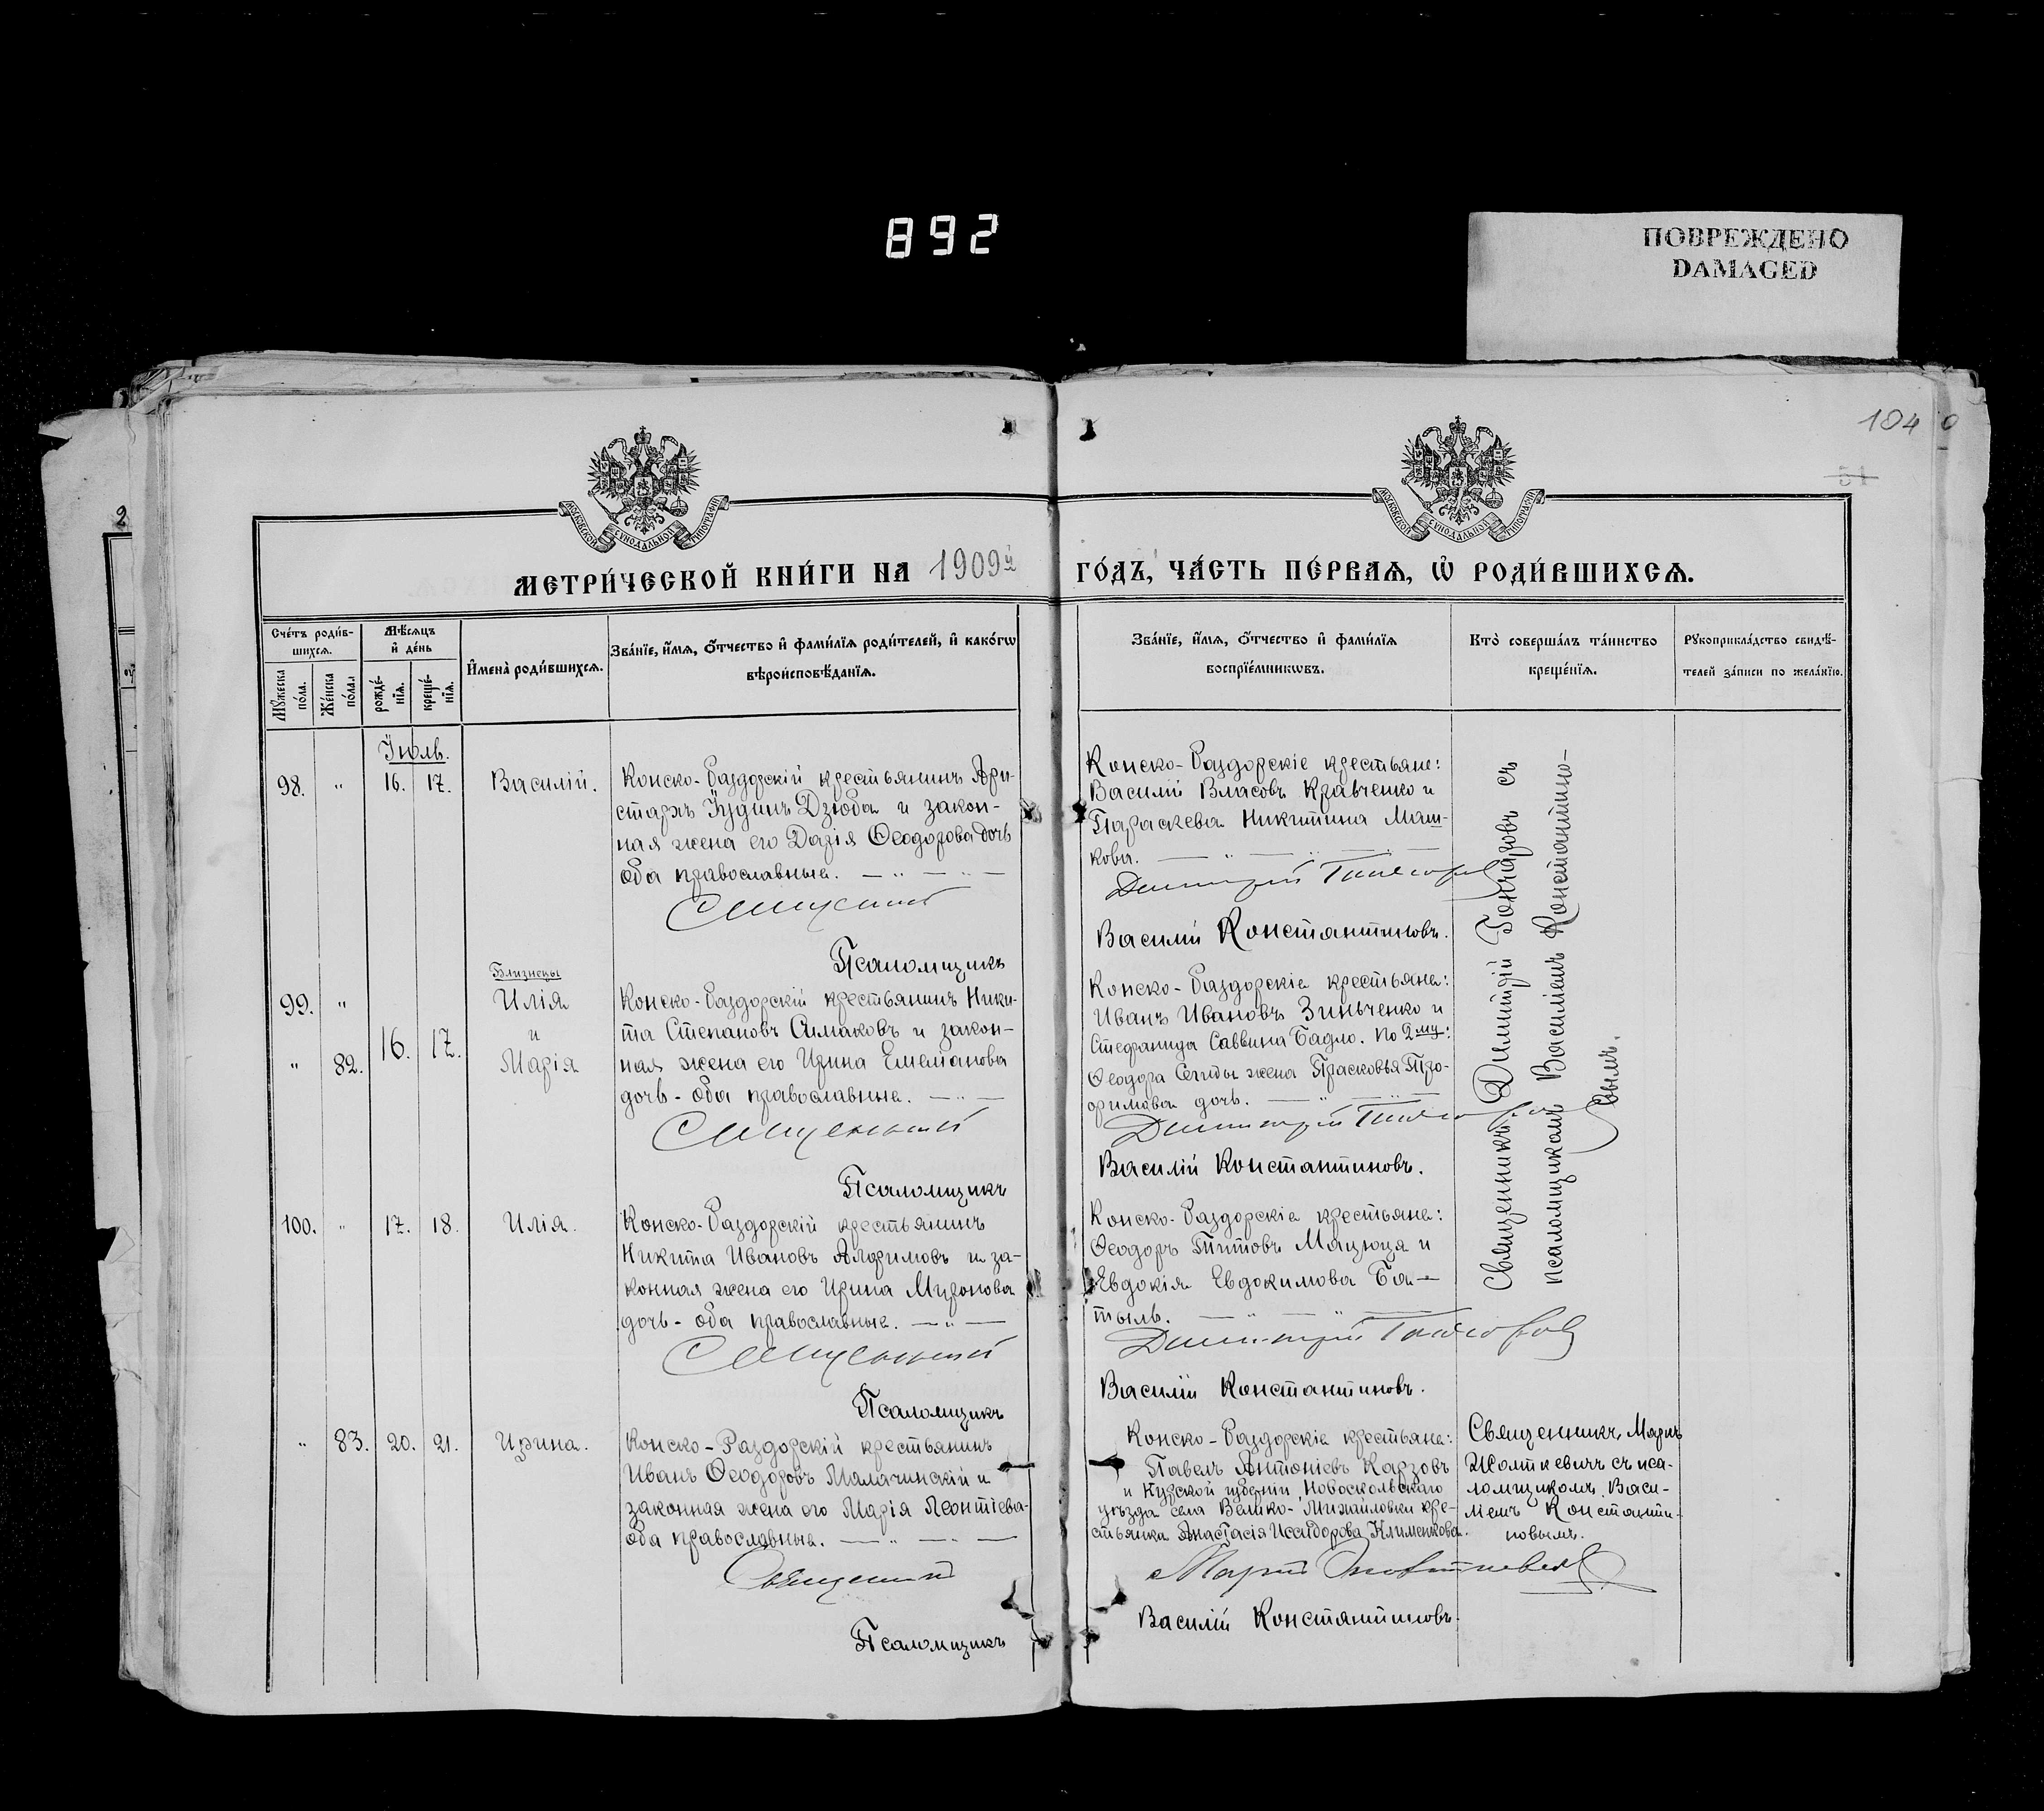 892
ПОВРЕЖДЕНО
DAMAGED
104
51
2
МОСКОВСКОЙ СУНОДАЛЬНОЙ ТИПОГРАФІИ
МОСКОВСКОЙ СУНОДАЛЬНОЙ ТИПОГРАФІИ
МЕТРИ́ЧЕСКОЙ КНИ́ГИ НА 1909й ГО́ДЪ, ЧА́СТЬ ПЕ́РВАѦ, Ѡ҆ РОДИ́ВШИХСѦ.
Сче́тъ роди́в-
шихсѧ.
Мꙋ́жеска по́ла.
Же́нска по́ла.
Мѣ́сѧцъ
и҆ де́нь
рожде́-
нїѧ.
креще́-
нїѧ.
И҆мена̀ роди́вшихсѧ.
Зва́нїе, и҆́мѧ, ѻ҆́тчество и҆ фами́лїѧ роди́телей, и҆ како́гѡ
вѣроисповѣ́данїѧ.
Зва́нїе, и҆́мѧ, ѻ҆́тчество и҆ фами́лїѧ
воспрїе́мникѡвъ.
Кто̀ соверша́лъ та́инство
креще́нїѧ.
Рꙋкоприкла́дство свидѣ́-
телей за́писи по жела́нїю.
Іюль.
98. " 16. 17. Василій.
Конско-Раздорскій крестьянинъ Ари-
стархъ Іудинъ Дзюба и закон-
ная жена его Дарія Ѳеодорова дочь
оба православные.
Священникъ
Псаломщикъ
Конско-Раздорскіе крестьяне:
Василій Власовъ Кравченко и
Параскева Никитина Маш-
кова.
Димитрій Гончаровъ
Василій Константиновъ.
Священникъ Димитрій Гончаровъ съ
псаломщикомъ Василіемъ Константино-
вымъ.
Близнецы
99. " Илія
и
" 82. 16. 17. Марія
Конско-Раздорскій крестьянинъ Ники-
та Степановъ Симаковъ и закон-
ная жена его Ирина Емеліанова
дочь - оба православные.
Священникъ
Псаломщикъ
Конско-Раздорскіе крестьяне:
Иванъ Ивановъ Зинченко и
Стефанида Саввина Бадло. По 2му:
Ѳеодора жена Прасковья Тро-
фимова дочь.
Димитрій Гончаровъ
Василій Константиновъ.
100. " 17. 18. Илія.
Конско-Раздорскій крестьянинъ
Никита Ивановъ Алфимовъ и за-
конная жена его Ирина Миронова
дочь - оба православные.
Священникъ
Псаломщикъ
Конско-Раздорскіе крестьяне:
Ѳеодоръ Титовъ Мацюця и
Евдокія Евдокимова Ба-
тыль.
Димитрій Гончаровъ
Василій Константиновъ.
" 83. 20. 21. Ирина.
Конско-Раздорскій крестьянинъ
Иванъ Ѳеодоровъ Малачинскій и
законная жена его Марія Леонтіева-
оба православные.
Священникъ
Псаломщикъ
Конско-Раздорскіе крестьяне:
Павелъ Антоніевъ Карзовъ
и Курской губерніи, Новоскольскаго
уѣзда села Велико-Михайловки кре-
стьянка Анастасія Исидорова Клименкова.
Василій Константиновъ.
Священникъ Маркъ
Жолткевичъ съ пса-
ломщикомъ Васи-
ліемъ Константи-
новымъ.